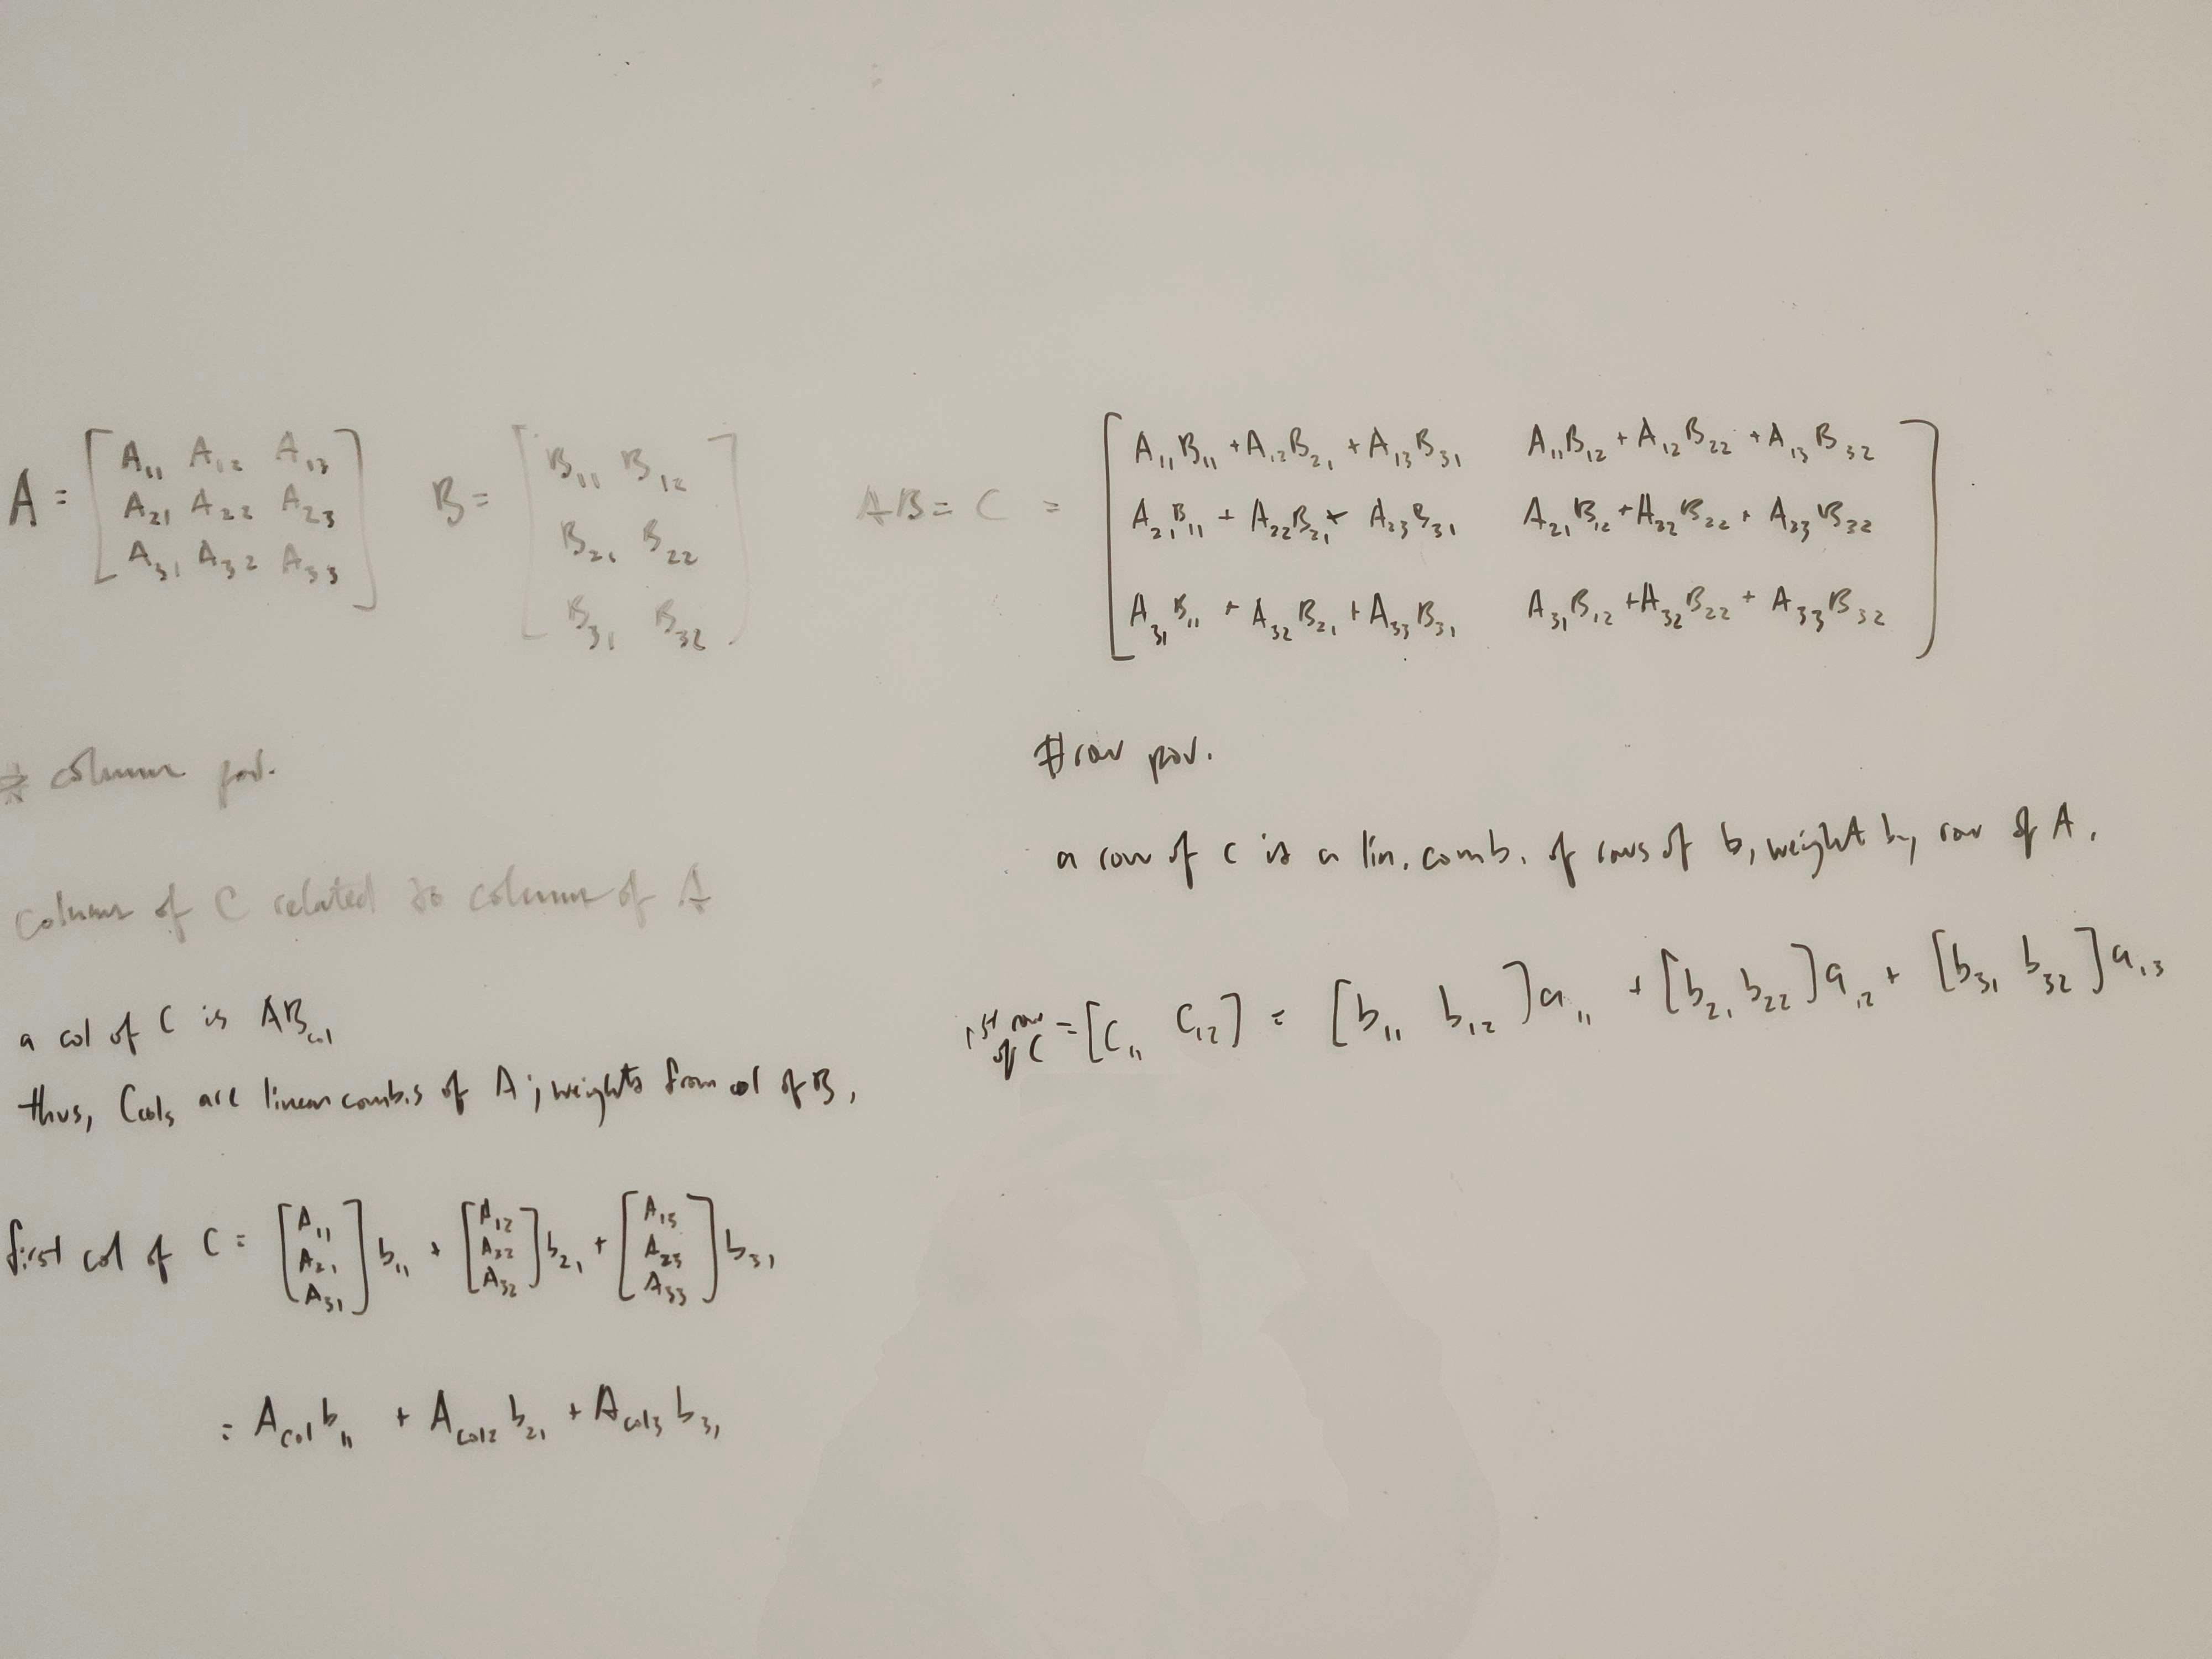 A = [A₁₁ A₁₂ A₁₃
A₂₁ A₂₂ A₂₃
A₃₁ A₃₂ A₃₃]
B = [B₁₁ B₁₂
B₂₁ B₂₂
B₃₁ B₃₂]
AB = C = [A₁₁B₁₁ + A₁₂B₂₁ + A₁₃B₃₁ A₁₁B₁₂ + A₁₂B₂₂ + A₁₃B₃₂
A₂₁B₁₁ + A₂₂B₂₁ + A₂₃B₃₁ A₂₁B₁₂ + A₂₂B₂₂ + A₂₃B₃₂
A₃₁B₁₁ + A₃₂B₂₁ + A₃₃B₃₁ A₃₁B₁₂ + A₃₂B₂₂ + A₃₃B₃₂]
# column pov.
columns of C related to column of A
a col of C is AB_col
thus, C_cols are linear combs of A; weights from col of B,
first col of C = [A₁₁ A₂₁ A₃₁] b₁₁ + [A₁₂ A₂₂ A₃₂] b₂₁ + [A₁₃ A₂₃ A₃₃] b₃₁
= A_col1 b₁₁ + A_col2 b₂₁ + A_col3 b₃₁
# row pov.
a row of c is a lin. comb. of rows of b, weight by row of A.
1st row of C = [C₁₁ C₁₂] = [b₁₁ b₁₂] a₁₁ + [b₂₁ b₂₂] a₁₂ + [b₃₁ b₃₂] a₁₃